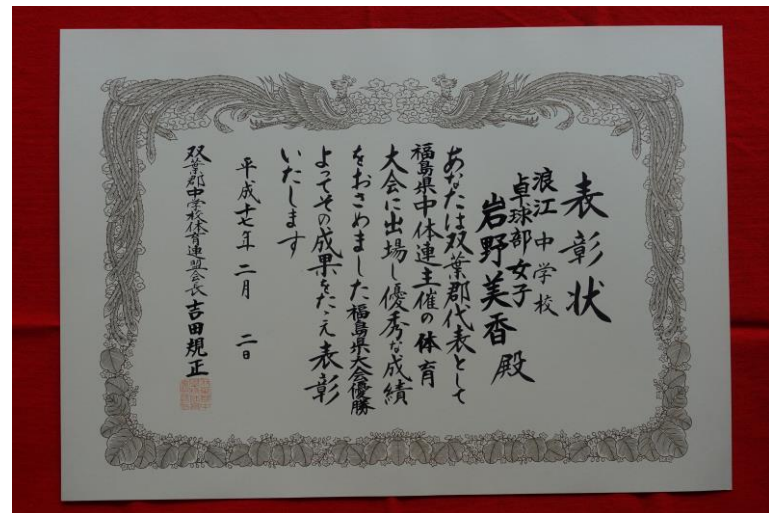 表彰状
浪江中学校
卓球部女子
岩野美香殿
あなたは双葉郡代表として
福島県中体連主催の体育
大会に出場し優秀な成績
をおさめました福島県大会優勝
よってその成果をたたえ表彰
いたします
平成十七年二月二日
双葉郡中学校体育連盟会長吉田規正